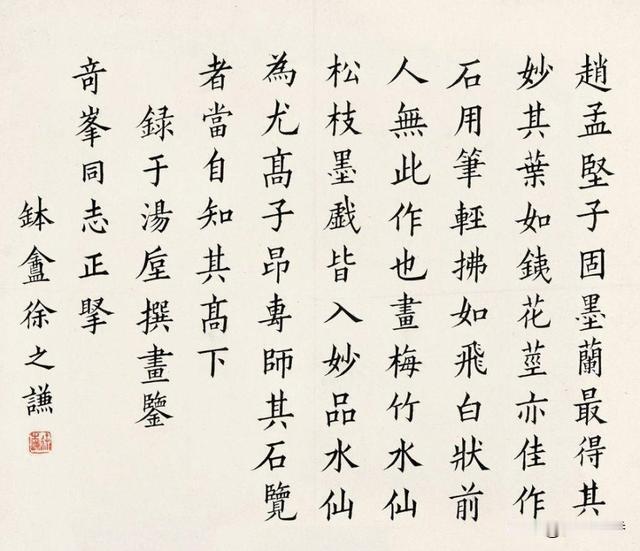 趙孟堅子固墨蘭最得其
妙其葉如銕花莖亦佳作
石用筆輕拂如飛白狀前
人無此作也畫梅竹水仙
松枝墨戲皆入妙品水仙
為尤髙子昂專師其石覽
者當自知其髙下
録于湯垕撰畫鑒
奇峯同志正擥
鉢盦徐之謙